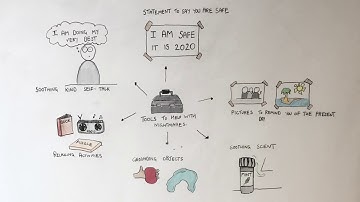 STATEMENT TO SAY YOU ARE SAFE
I AM DOING MY
VERY BEST
I AM SAFE
IT IS 2020
SOOTHING KIND SELF-TALK
TOOLS TO HELP WITH
NIGHTMARES
PICTURES TO REMIND YOU OF THE PRESENT
DAY
BOOK
PUZZLE
RELAXING ACTIVITIES
GROUNDING OBJECTS
SOOTHING SCENT
MINT